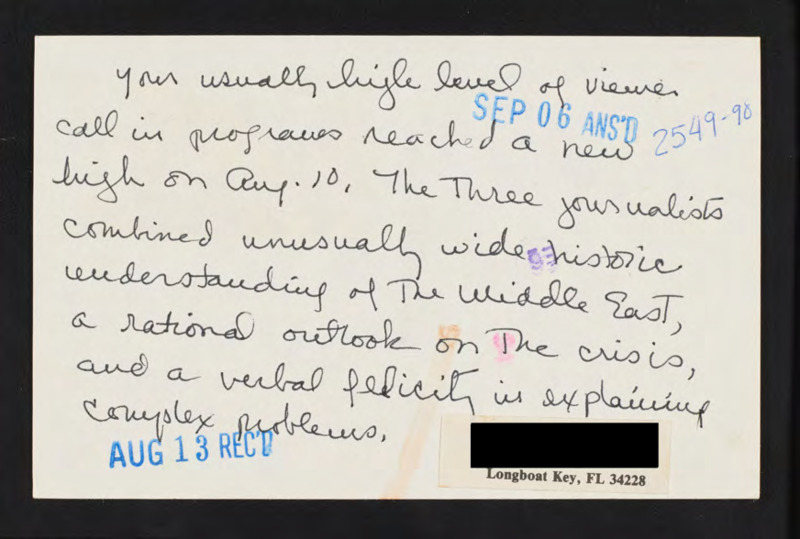 Your usually high level of viewer
SEP 06 ANS'D
call in programs reached a new
2549-90
high on Aug. 10. The Three journalists
combined unusually wide historic
understanding of The Middle East,
a rational outlook on The crisis,
and a verbal felicity in explaining
complex problems.
AUG 13 REC'D
Longboat Key, FL 34228